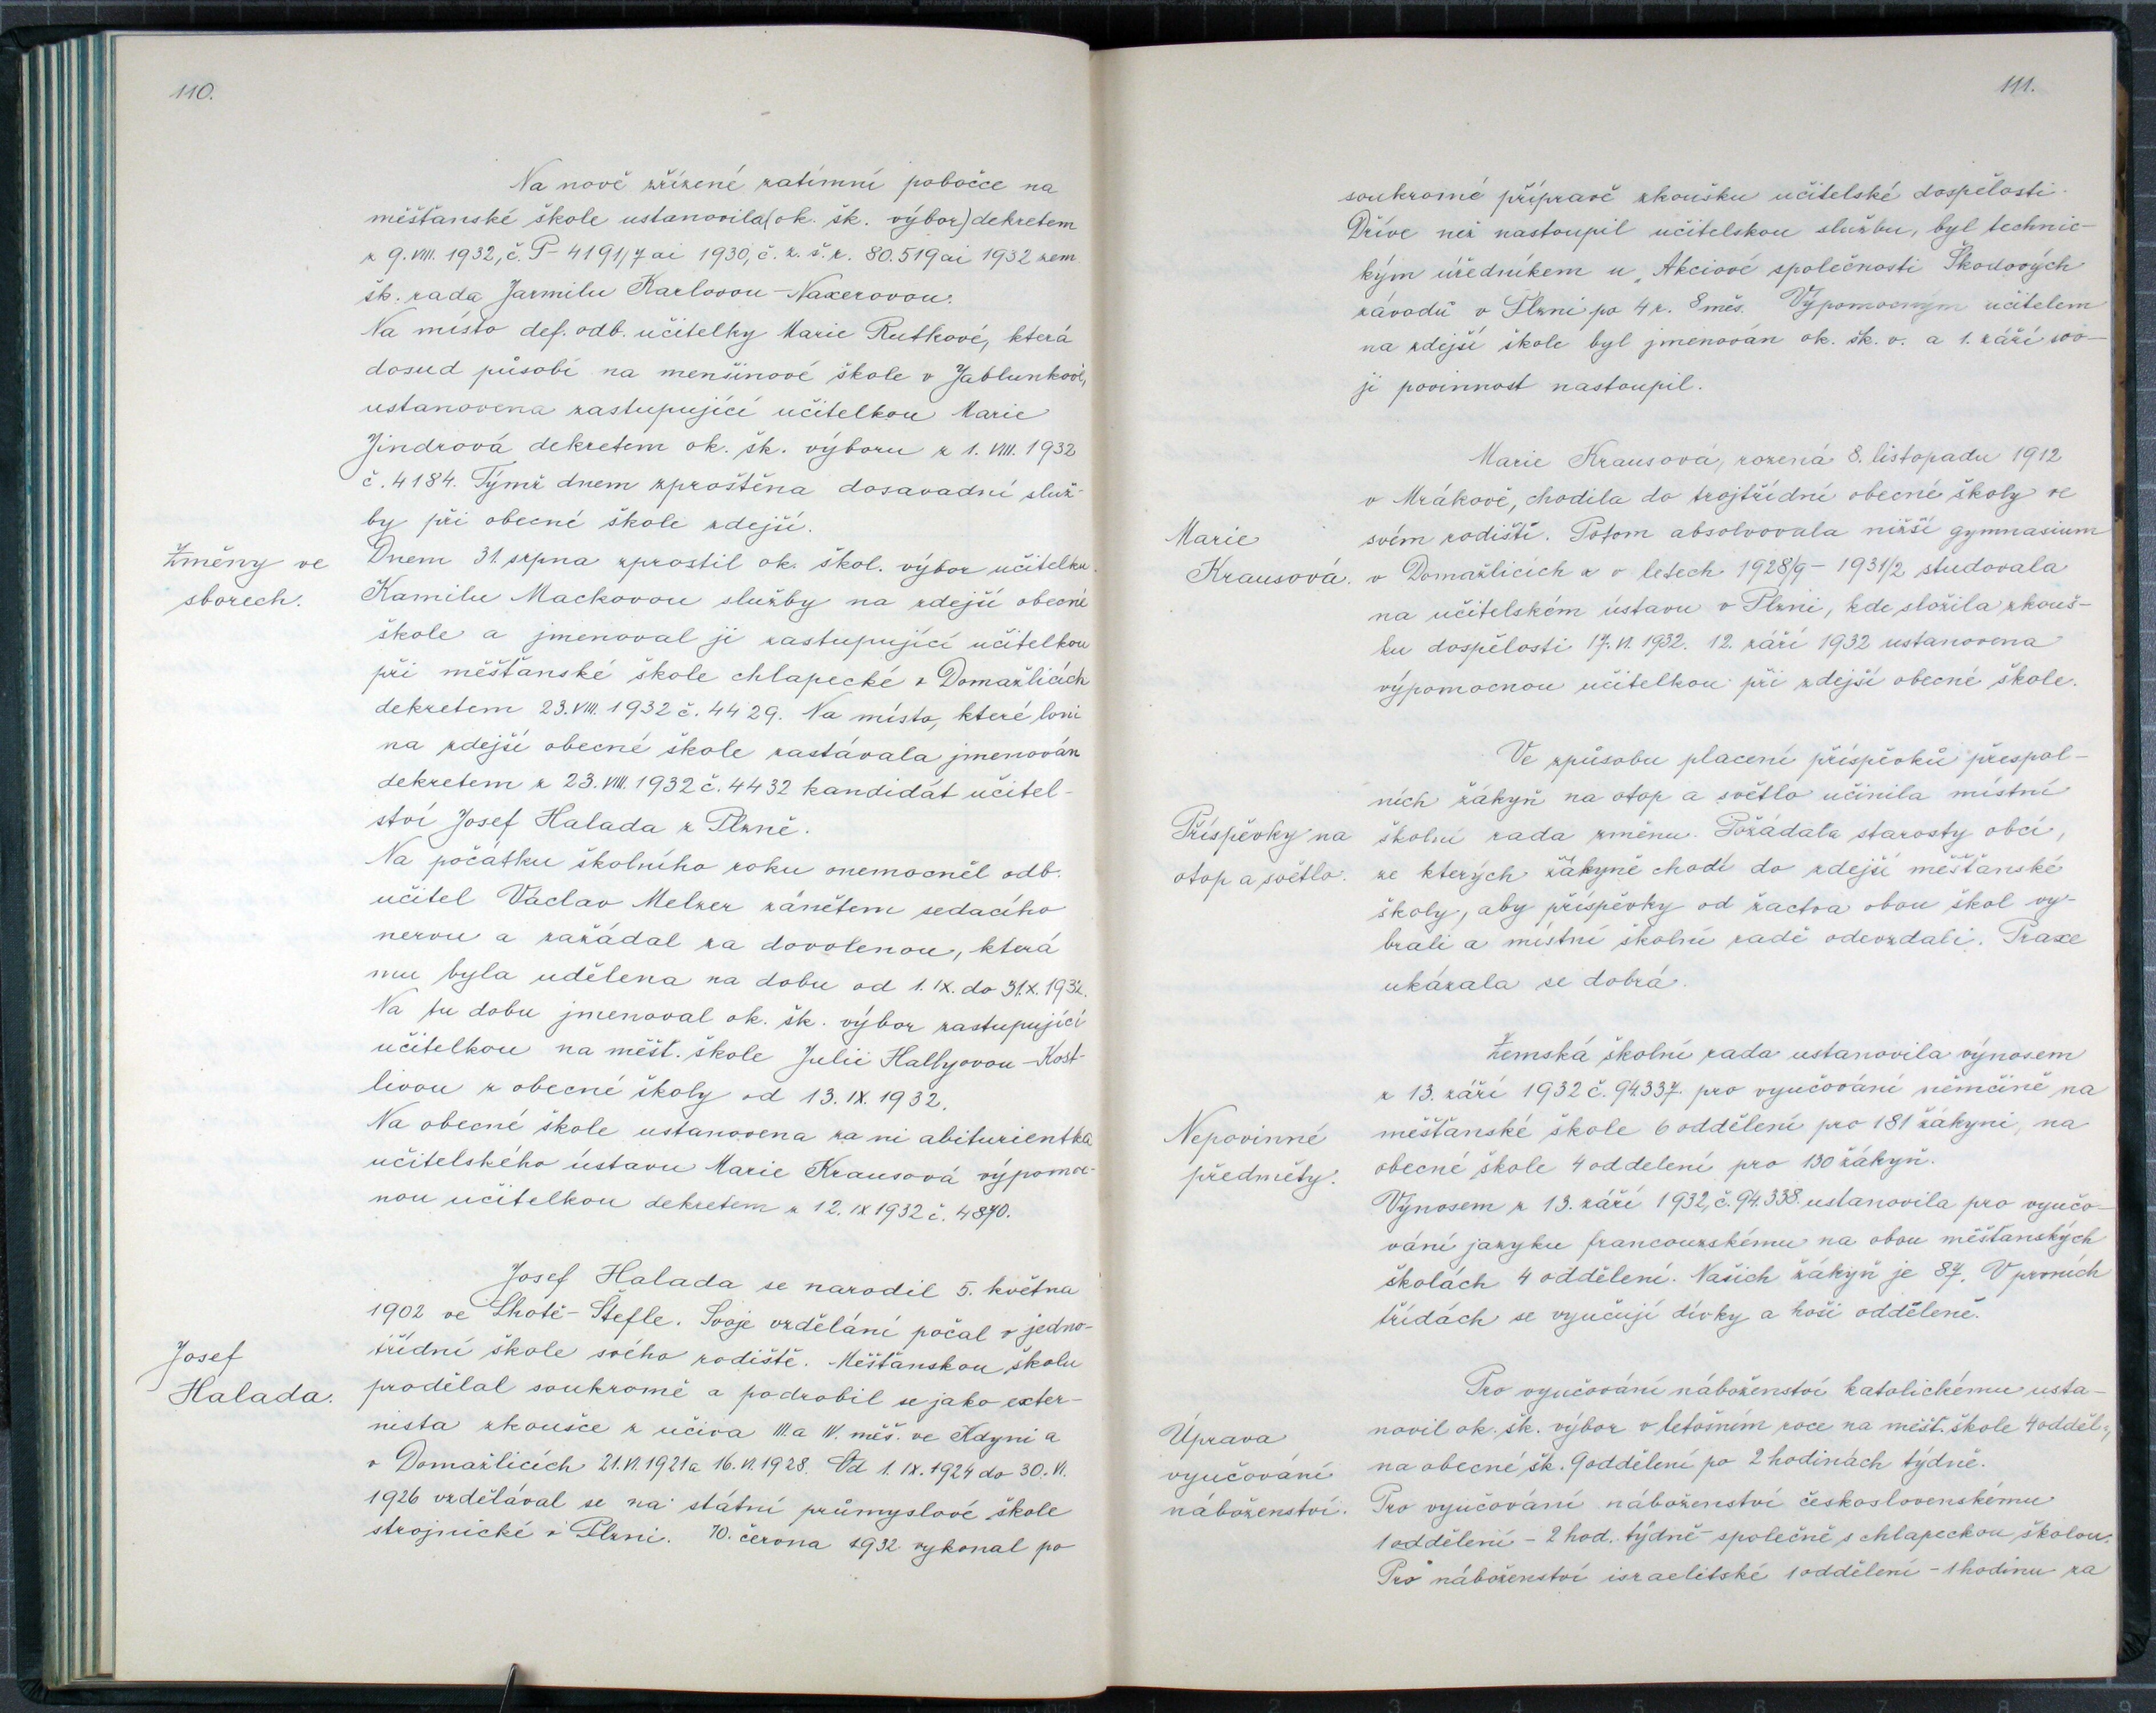 110.
Na nově zřízené zatímní pobočce na
měšťanské škole ustanovila (ok. šk. výbor) dekretem
z 9. VIII. 1932, č. P - 4191/7 ai 1930, č. z. š. r. 80.519 ai 1932 zem.
šk. rada Jarmilu Karlovou - Naxerovou.
Na místo def. odb. učitelky Marie Rutkové, která
dosud působí na menšinové škole v Jablunkově,
ustanovena zastupující učitelkou Marie
Jindrová dekretem ok. šk. výboru z 1. VIII. 1932
č. 4184. Týmž dnem zproštěna dosavadní služ-
by při obecné škole zdejší.
Změny ve
sborech.
Dnem 31. srpna zprostil ok. škol. výbor učitelku
Kamilu Mackovou služby na zdejší obecné
škole a jmenoval ji zastupující učitelkou
při měšťanské škole chlapecké v Domažlicích
dekretem 23. VIII. 1932 č. 4429. Na místo, které loni
na zdejší obecné škole zastávala jmenován
dekretem z 23. VIII. 1932 č. 4432 kandidát učitel-
ství Josef Halada z Plzně.
Na počátku školního roku onemocněl odb.
učitel Václav Melzer zánětem sedacího
nervu a zažádal za dovolenou, která
mu byla udělena na dobu od 1. IX. do 31. X. 1932.
Na tu dobu jmenoval ok. šk. výbor zastupující
učitelkou na měšť. škole Julii Hallyovou - Kost-
livou z obecné školy od 13. IX. 1932.
Na obecné škole ustanovena za ni abiturientka
učitelského ústavu Marie Krausová výpomoc-
nou učitelkou dekretem z 12. IX 1932 č. 4870.
Josef
Halada.
Josef Halada se narodil 5. května
1902 ve Lhotě - Štefle. Svoje vzdělání počal v jedno-
třídní škole svého rodiště. Měšťanskou školu
prodělal soukromě a podrobil se jako exter-
nista zkoušce z učiva III. a IV. měš. ve Kdyni a
v Domažlicích 21. VI. 1921 a 16. VI. 1928. Od 1. IX. 1924 do 30. VI.
1926 vzdělával se na státní průmyslové škole
strojnické v Plzni. 10. června 1932 vykonal po
111.
soukromé přípravě zkoušku učitelské dospělosti.
Dříve než nastoupil učitelskou službu, byl technic-
kým úředníkem u „Akciové společnosti Škodových
závodů v Plzni po 4 r. 8 měs. Výpomocným učitelem
na zdejší škole byl jmenován ok. šk. v. a 1. září svo-
ji povinnost nastoupil.
Marie
Krausová.
Marie Krausová, rozená 8. listopadu 1912
v Mrákově, chodila do trojtřídní obecné školy ve
svém rodišti. Potom absolvovala nižší gymnasium
v Domažlicích a v letech 1928/9 - 1931/2 studovala
na učitelském ústavu v Plzni, kde složila zkouš-
ku dospělosti 17. VI. 1932. 12. září 1932 ustanovena
výpomocnou učitelkou při zdejší obecné škole.
Příspěvky na
otop a světlo.
Ve způsobu placení příspěvků přespol-
ních žákyň na otop a světlo učinila místní
školní rada změnu. Požádala starosty obcí,
ze kterých žákyně chodí do zdejší měšťanské
školy, aby příspěvky od žactva obou škol vy-
brali a místní školní radě odevzdali. Praxe
ukázala se dobrá.
Nepovinné
předměty.
Zemská školní rada ustanovila výnosem
z 13. září 1932 č. 94.337. pro vyučování němčině na
měšťanské škole 6 oddělení pro 181 žákyni, na
obecné škole 4 oddelení pro 130 žákyň.
Výnosem z 13. září 1932, č. 94.338. ustanovila pro vyučo-
vání jazyku francouzskému na obou měšťanských
školách 4 oddělení. Našich žákyň je 87. V prvních
třídách se vyučují dívky a hoši odděleně.
Úprava
vyučování
náboženství.
Pro vyučování náboženství katolickému usta-
novil ok. šk. výbor v letošním roce na měšť. škole 4 odděl.,
na obecné šk. 9 oddělení po 2 hodinách týdně.
Pro vyučování náboženství československému
1 oddělení - 2 hod. týdně - společně s chlapeckou školou.
Pro náboženství israelitské 1 oddělení - 1 hodinu za